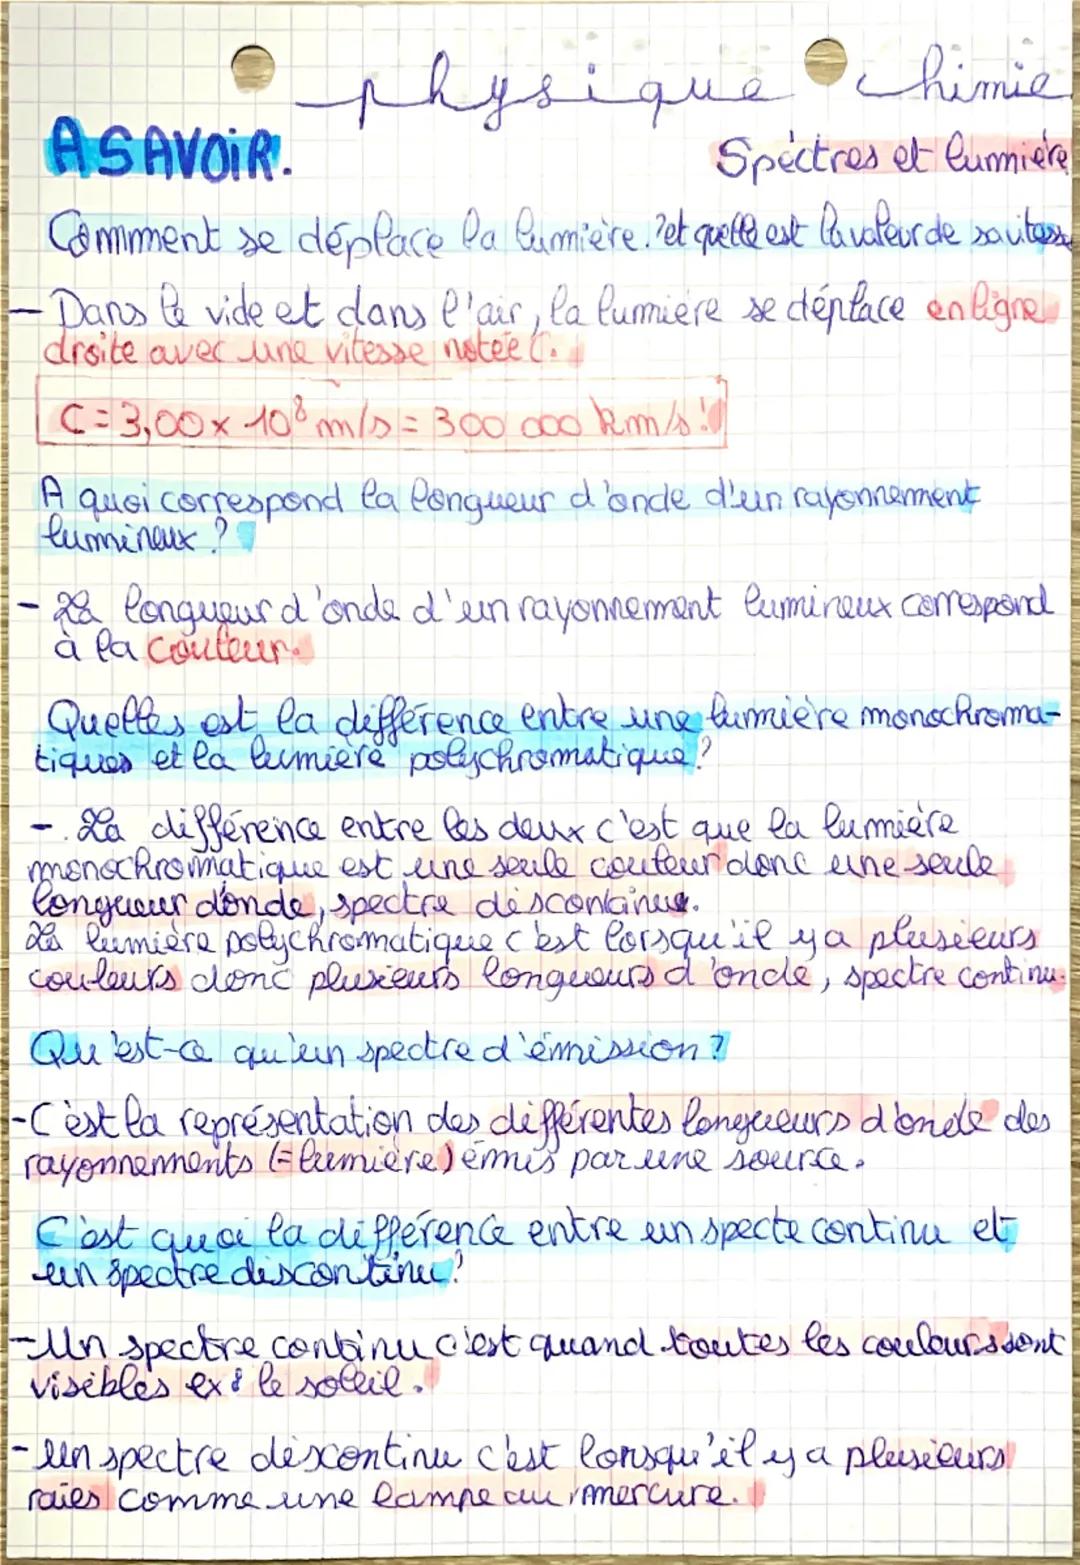 physique chimie
A SAVOIR.
Spectres et lumière
Comment se déplace la lumière.? et quelle est la valeur de sa vitesse
- Dans le vide et dans l'air, la lumière se déplace en ligne
droite avec une vitesse notée C.
C = 3,00 x 10⁸ m/s = 300 000 km/s !
A quoi correspond la longueur d'onde d'un rayonnement
lumineux ?
- La longueur d'onde d'un rayonnement lumineux correspond
à la couleur.
Quelles est la différence entre une lumière monochroma-
tiques et la lumière polychromatique ?
- La différence entre les deux c'est que la lumière
monochromatique est une seule couleur donc une seule
longueur d'onde, spectre discontinus.
La lumière polychromatique c'est lorsqu'il y a plusieurs
couleurs donc plusieurs longueurs d'onde, spectre continu.
Qu'est-ce qu'un spectre d'émission ?
- C'est la représentation des différentes longueurs d'onde des
rayonnements (= lumière) émis par une source.
C'est quoi la différence entre un specte continu et
un spectre discontinu ?
- Un spectre continu c'est quand toutes les couleurs sont
visibles ex : le soleil.
- Un spectre discontinu c'est lorsqu'il y a plusieurs
raies comme une lampe au mercure.